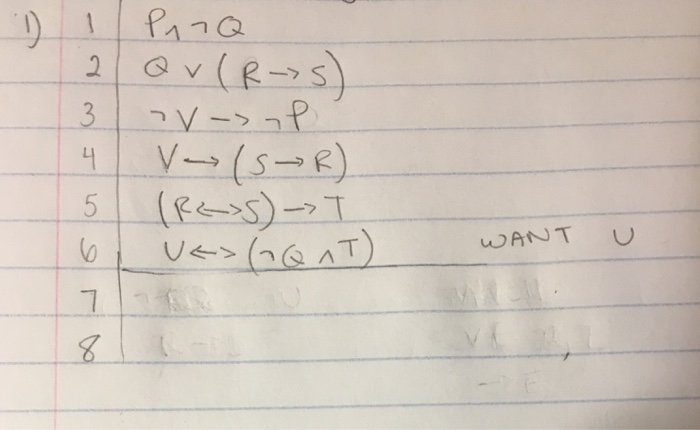 1) 1 P∧¬Q
2 Q ∨ (R→S)
3 ¬V→¬P
4 V→(S→R)
5 (R↔S)→T
6 U↔(¬Q∧T) WANT U
7
8